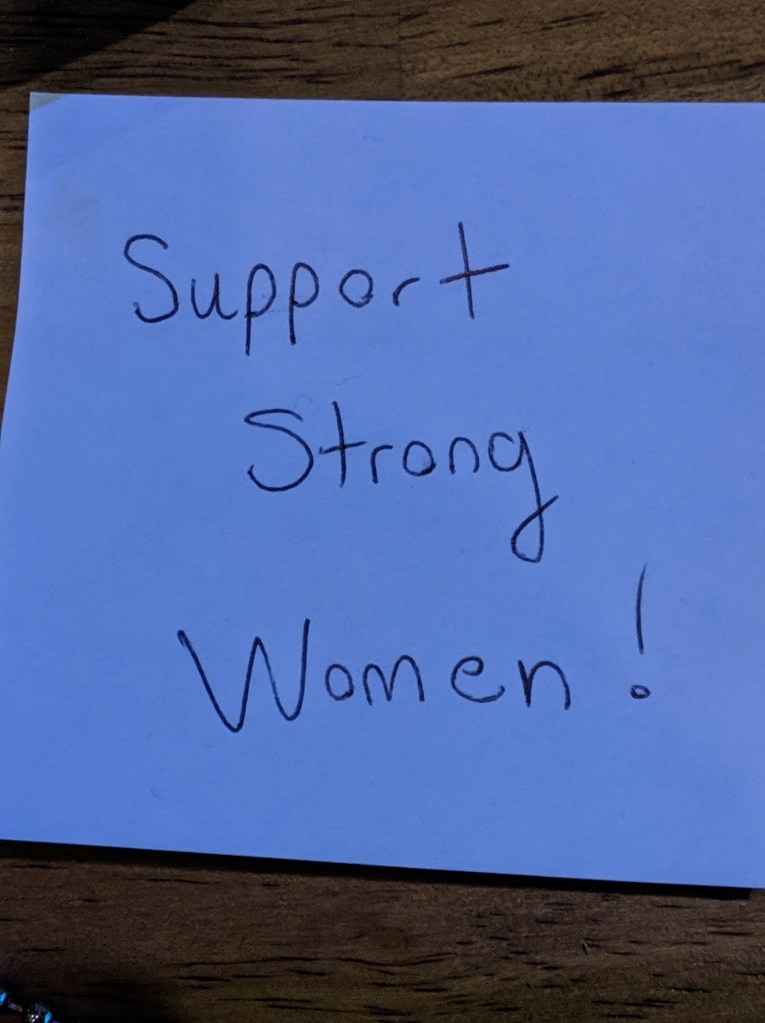 Support
Strong
Women!